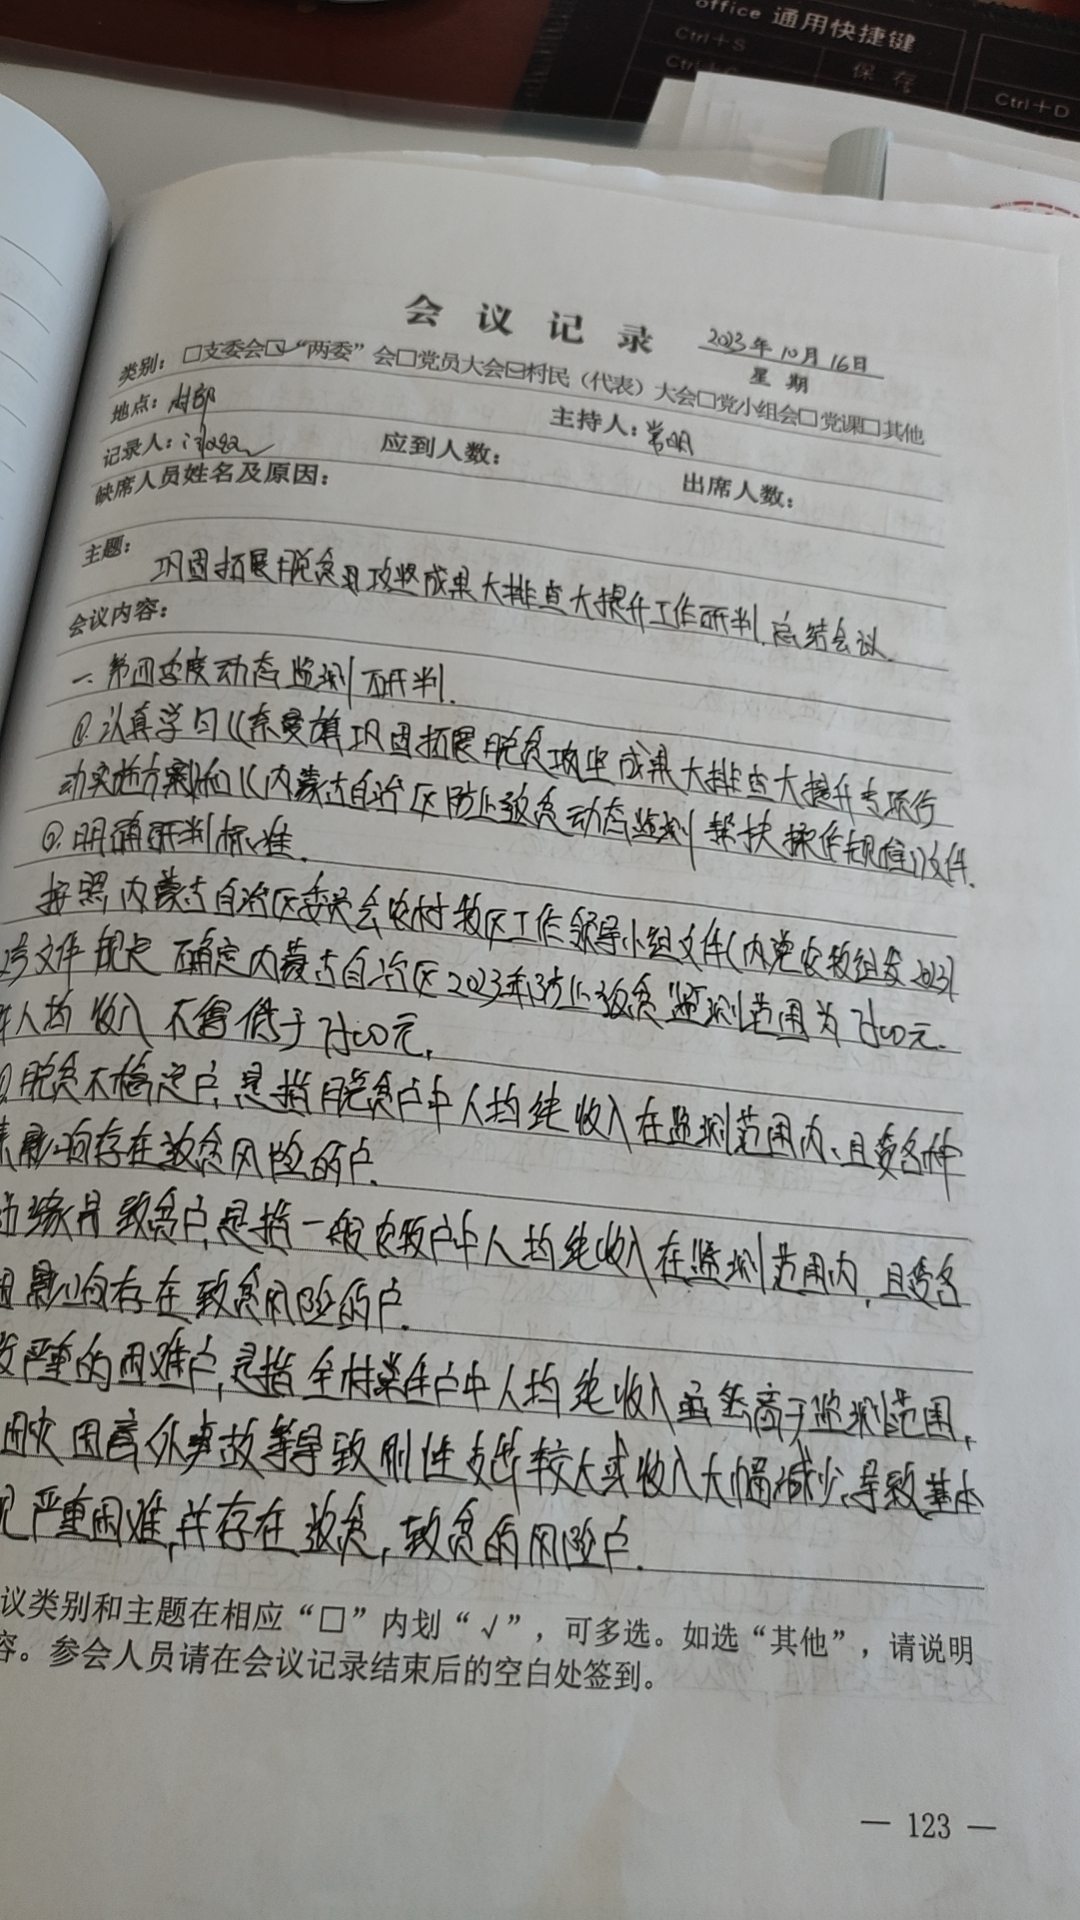 office 通用快捷键
Ctrl+S 保存
Ctrl+D
会议记录
2023年10月16日
星期
类别：□支委会☑“两委”会□党员大会□村民（代表）大会□党小组会□党课□其他
地点：村部
主持人：常明
记录人：
应到人数：
出席人数：
缺席人员姓名及原因：
主题：
巩固拓展脱贫攻坚成果大排查大提升工作研判.总结会议.
会议内容：
一.第四季度动态监测研判.
①.认真学习《奈曼旗巩固拓展脱贫攻坚成果大排查大提升专项行
动实施方案》和《内蒙古自治区防止致贫动态监测帮扶操作规程》文件.
②.明确研判标准.
按照内蒙古自治区委员会农村牧区工作领导小组文件(内党农牧组发2023
号文件规定确定内蒙古自治区2023年防止致贫监测范围为7500元.
年人均收入不得低于7500元.
脱贫不稳定户,是指脱贫户中人均纯收入在监测范围内、且受各种
素影响存在致贫风险的户.
边缘易致贫户,是指一般农牧户中人均纯收入在监测范围内,且受各
因影响存在致贫风险的户.
严重的困难户,是指全村常住户中人均纯收入虽然高于监测范围,
因灾因意外事故等导致刚性支出较大或收入大幅减少,导致基本
现严重困难,并存在返贫,致贫的风险户.
议类别和主题在相应“□”内划“√”，可多选。如选“其他”，请说明
容。参会人员请在会议记录结束后的空白处签到。
— 123 —